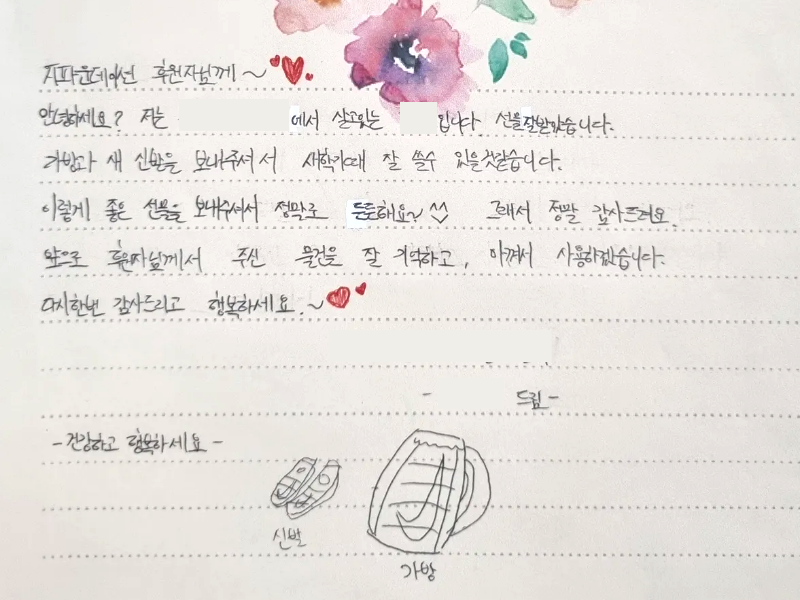 지파운데이션 후원자님께~
안녕하세요? 저는 에서 살고있는 입니다. 선물잘받았습니다.
가방과 새 신발을 보내주셔서 새학기때 잘 쓸수 있을것같습니다.
이렇게 좋은 선물을 보내주셔서 정말로 든든해요~^^ 그래서 정말 감사드려요.
앞으로 후원자님께서 주신 물건을 잘 기억하고, 아껴서 사용하겠습니다.
다시한번 감사드리고 행복하세요.~
- 드림-
-건강하고 행복하세요-
신발
가방